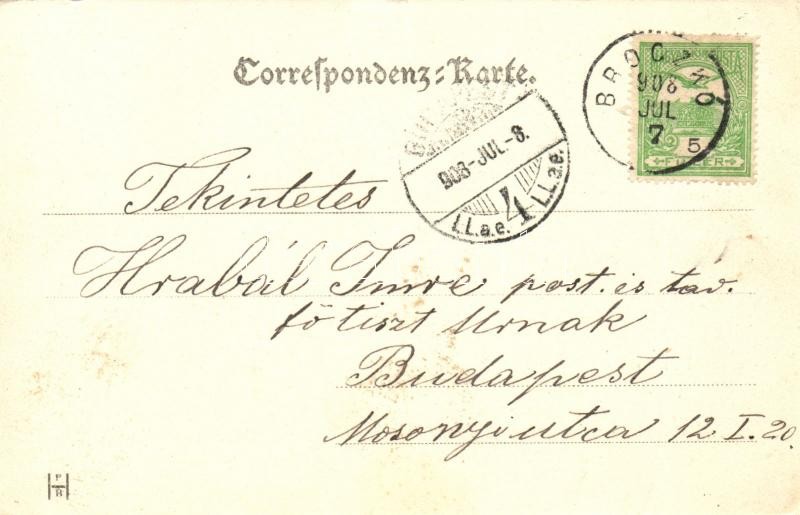 Correspondenz-Karte.
BROCZKÓ
908
JUL
7
5
FILLÉR
908-JUL.-8.
4
I.I.a.e. I.I.a.e.
Tekintetes
Hrabál Imre post. és táv.
főtiszt Urnak
Budapest
Mosonyi utca 12 I. 20.
P
B